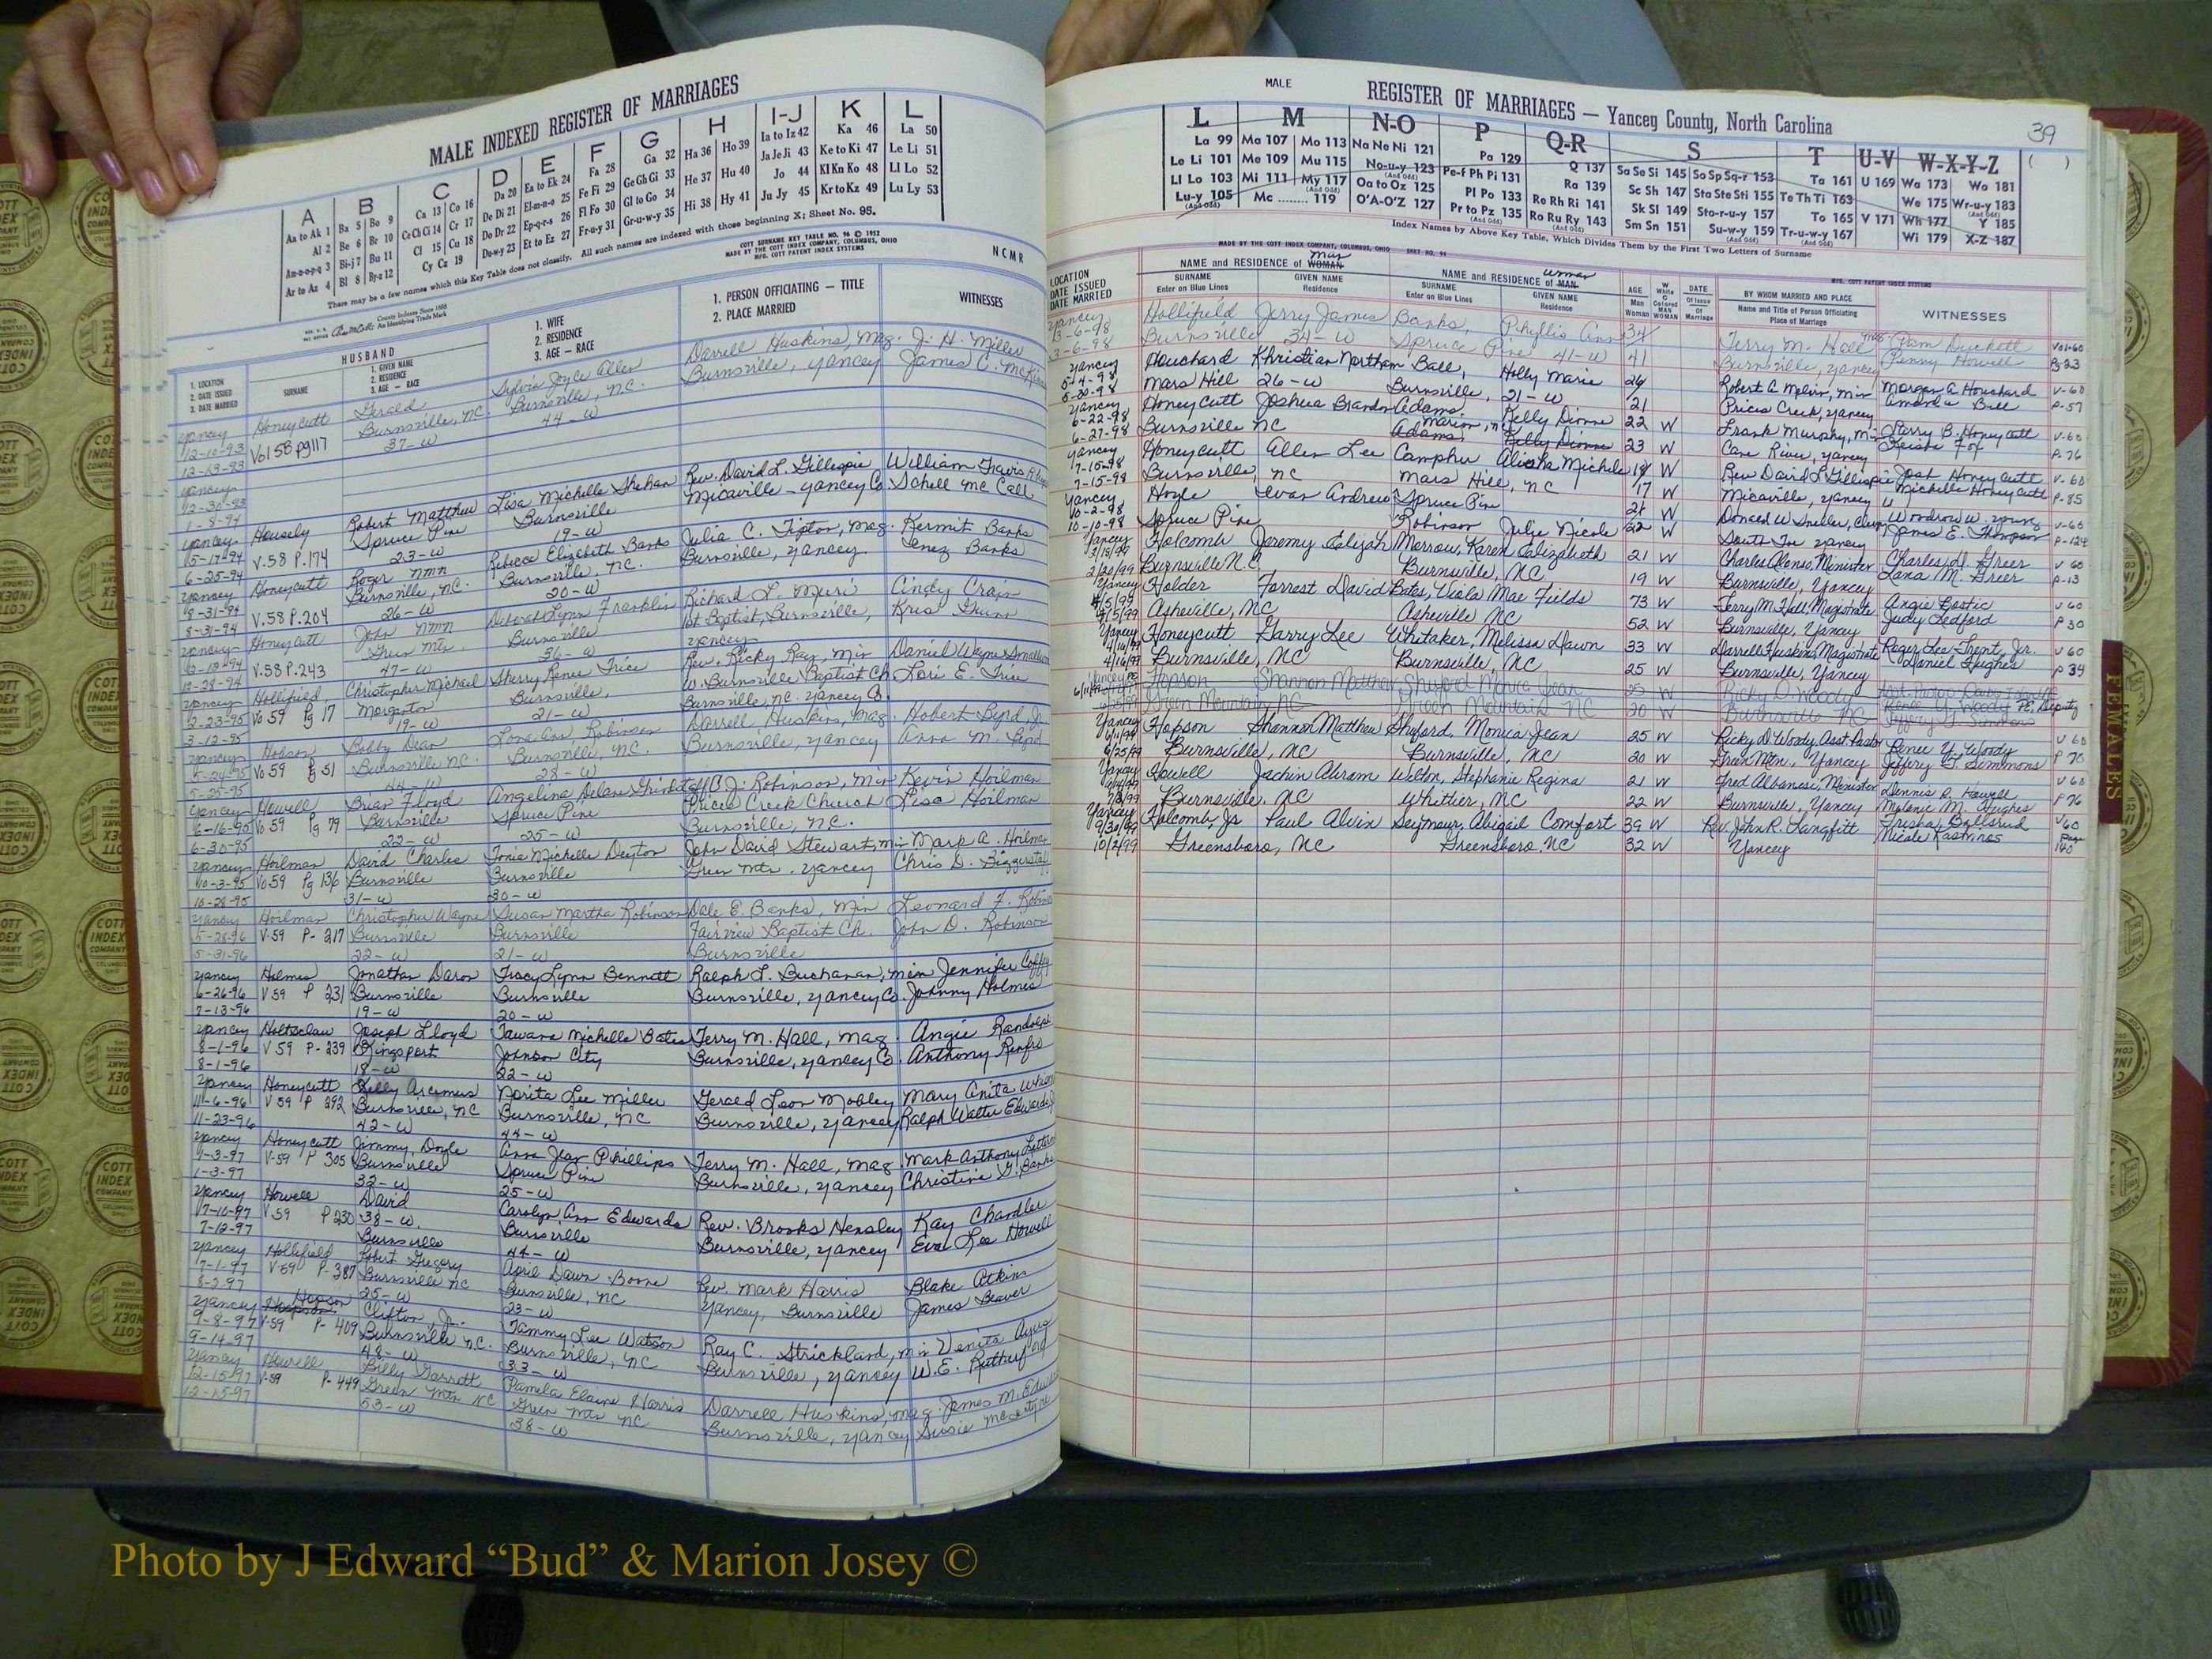 MALE INDEXED REGISTER OF MARRIAGES
A B C D E F G H I-J K L
Aa to Ak 1 Ba 5 Bo 9 Ca 13 Co 16 Da 20 Ea to Ek 24 Fa 28 Ga 32 Ha 36 Ho 39 Ia to Iz 42 Ka 46 La 50
Al 2 Be 6 Br 10 Ce Ch Ci 14 Cr 17 De Di 21 El-m-n-o 25 Fe Fi 29 Ge Gh Gi 33 He 37 Hu 40 Ja Je Ji 43 Ke to Ki 47 Le Li 51
Am-n-o-p-q 3 Bi-j 7 Bu 11 Cl 15 Cu 18 Do Dr 22 Ep-q-r-s 26 Fl Fo 30 Gl to Go 34 Hi 38 Hy 41 Jo 44 Kl Kn Ko 48 Ll Lo 52
Ar to Az 4 Bl 8 By-z 12 Cy Cz 19 Du-w-y 23 Et to Ez 27 Fr-u-y 31 Gr-u-w-y 35 Ju Jy 45 Kr to Kz 49 Lu Ly 53
There may be a few names which this Key Table does not classify. All such names are indexed with those beginning X; Sheet No. 95.
COTT SURNAME KEY TABLE NO. 96 © 1952
BY THE COTT INDEX COMPANY, COLUMBUS, OHIO
MFG. COTT PATENT INDEX SYSTEMS
NCMR
County Indexes Since 1888
An Identifying Trade Mark
1. LOCATION
2. DATE ISSUED
3. DATE MARRIED
HUSBAND
SURNAME
1. GIVEN NAME
2. RESIDENCE
3. AGE — RACE
1. WIFE
2. RESIDENCE
3. AGE — RACE
1. PERSON OFFICIATING — TITLE
2. PLACE MARRIED
WITNESSES
Yancey Honeycutt Gerald Sylvia Joyce Allen Darrell Huskins, Mag. J. H. Miller
12-10-93 Vol 58 pg 117 Burnsville, N.C. Burnsville, N.C. Burnsville, Yancey James C.
12-13-93 37-W 44-W
Yancey
12-30-93
1-8-94
Yancey Housely Robert Matthew Lisa Michelle Shehan Rev. David L. Gillespie William Travis
5-17-94 V.58 P.174 Spruce Pine Burnsville Micaville - Yancey Co. Schell McCall
6-25-94 23-W 19-W
Yancey Honeycutt Roger NMN Rebecca Elizabeth Banks Julia C. Tipton, Mag. Kermit Banks
8-31-94 V.58 P.204 Burnsville, N.C. Burnsville, N.C. Burnsville, Yancey. Inez Banks
8-31-94 26-W 20-W
Yancey Honeycutt John NMN Deborah Lynn Franklin Richard L. Cindy Crain
12-12-94 V.58 P.243 Green Mtn. Burnsville 1st Baptist, Burnsville, Kris
12-28-94 47-W 36-W Yancey
Yancey Hollifield Christopher Michael Sherry Renee Trice Rev. Ricky Ray, Min Daniel Wayne
2-23-95 Vo 59 Pg 17 Morganton Burnsville, W. Burnsville Baptist Ch Lori E. Trice
3-12-95 19-W 21-W Burnsville, N.C. Yancey Co.
Yancey Hobson Bobby Dean Robinson Darrell Huskins, Mag. Hobert Byrd, Jr.
5-24-95 Vo 59 Pg 51 Burnsville N.C. Burnsville, N.C. Burnsville, Yancey Anna M. Byrd
5-25-95 44-W 28-W
Yancey Howell Brian Floyd Angelina Delane C. J. Robinson, Min Kevin Hoilman
6-16-95 Vo 59 Pg 79 Burnsville Spruce Pine Prices Creek Church Lisa Hoilman
6-30-95 22-W 25-W Burnsville, N.C.
Yancey Hoilman David Charles Tonia Michelle Deyton John David Stewart, Min Mark A. Hoilman
10-3-95 Vo 59 Pg 136 Burnsville Burnsville Green Mtn. Yancey Chris D. Biggerstaff
10-28-95 31-W 30-W
Yancey Hoilman Christopher Wayne Susan Martha Robinson Dale E. Banks, Min Leonard F.
5-28-96 V-59 P-217 Burnsville Burnsville Fairview Baptist Ch. John D. Robinson
5-31-96 22-W 21-W Burnsville
Yancey Holmes Jonathan Daron Tracy Lynn Bennett Ralph L. Buchanan, Min Jennifer Coffey
6-26-96 V 59 P 231 Burnsville Burnsville Burnsville, Yancey Co. Johnny Holmes
7-13-96 19-W 20-W
Yancey Holtsclaw Joseph Lloyd Tawana Michelle Bates Terry M. Hall, Mag. Angie Randolph
8-1-96 V 59 P-239 Kingsport Johnson City Burnsville, Yancey Co. Anthony Renfro
8-1-96 18-W 22-W
Yancey Honeycutt Kelly Arcemus Norita Lee Miller Gerald Leon Mobley Mary Anita
11-6-96 V 59 P 292 Burnsville, NC Burnsville, NC Burnsville, Yancey Ralph Walter Edwards
11-23-96 42-W 44-W
Yancey Honeycutt Jimmy, Doyle Anna Jean Phillips Terry M. Hall, Mag. Mark Anthony
1-3-97 V-59 P 305 Burnsville Spruce Pine Burnsville, Yancey Christine G. Banks
1-3-97 32-W 25-W
Yancey Howell David Carolyn Ann Edwards Rev. Brooks Hensley Kay Chandler
7-10-97 V 59 P 230 38-W. Burnsville Burnsville, Yancey Eva Lee Howell
7-12-97 Burnsville 44-W
Yancey Hollifield Robert Gregory April Dawn Boone Rev. Mark Harris Blake Atkins
7-1-97 V-59 P-387 Burnsville NC Burnsville, NC Yancey, Burnsville James Beaver
8-2-97 25-W 23-W
Yancey Hopson Clifton, Jr. Tammy Lee Watson Ray C. Strickland, Min Venita Ayers
9-8-97 V-59 P-409 Burnsville N.C. Burnsville, NC Burnsville, Yancey W.E. Rutherford
9-14-97 48-W 33-W
Yancey Howell Billy Garrett Pamela Elaine Harris Darrell Huskins, Mag. James M.
12-15-97 V-59 P-449 Green Mtn NC Green Mtn NC Burnsville, Yancey Susie
12-15-97 53-W 38-W
MALE
REGISTER OF MARRIAGES — Yancey County, North Carolina
39
( )
L M N-O P Q-R S T U-V W-X-Y-Z
La 99 Ma 107 Mo 113 Na Ne Ni 121 Pa 129 Q 137 Sa Se Si 145 So Sp Sq-r 153 Ta 161 U 169 Wa 173 Wo 181
Le Li 101 Me 109 Mu 115 No-u-y 123 (And Odd) Pe-f Ph Pi 131 Ra 139 Sc Sh 147 Sta Ste Sti 155 Te Th Ti 163 We 175 Wr-u-y 183 (And Odd)
Ll Lo 103 Mi 111 My 117 (And Odd) Oa to Oz 125 Pl Po 133 Re Rh Ri 141 Sk Sl 149 Sto-r-u-y 157 To 165 V 171 Wh 177 Y 185
Lu-y 105 (And Odd) Mc ........ 119 O'A-O'Z 127 Pr to Pz 135 Ro Ru Ry 143 Sm Sn 151 Su-w-y 159 (And Odd) Tr-u-w-y 167 (And Odd) Wi 179 X-Z 187
Index Names by Above Key Table, Which Divides Them by the First Two Letters of Surname
MADE BY THE COTT INDEX COMPANY, COLUMBUS, OHIO
MFG. COTT PATENT INDEX SYSTEMS
LOCATION
DATE ISSUED
DATE MARRIED
NAME and RESIDENCE of WOMAN Man
SURNAME
Enter on Blue Lines
GIVEN NAME
Residence
NAME and RESIDENCE of MAN Woman
SURNAME
Enter on Blue Lines
GIVEN NAME
Residence
AGE
Man
Woman
W
White
C
Colored
MAN
WOMAN
DATE
Of Issue
Of Marriage
BY WHOM MARRIED AND PLACE
Name and Title of Person Officiating
Place of Marriage
WITNESSES
Yancey Hollifield Jerry James Banks, Phyllis Ann 34 Terry M. Hall Mag Pam Duckett Vol-60
3-6-98 Burnsville 34-W Spruce Pine 41-W 41 Burnsville, Yancey Penny Howell Pg 23
3-6-98
Yancey Houchard Khristian Northam Ball, Holly Marie 26 Robert A Melvin, Min Morgan A Houchard V-60
5-4-98 Mars Hill 26-W Burnsville, 21-W 21 Prices Creek, Yancey Amanda Ball P-57
5-20-98
Yancey Honeycutt Joshua Brandon Adams, Kelly Dionne 22 W Frank Murphy, Min Harry B. Honeycutt V-60
6-22-98 Burnsville NC Marion, NC Adams, Kelly Dionne 23 W Cane River, Yancey Keisha Fox P. 76
6-27-98
Yancey Honeycutt Allen Lee Camphu Alisha Michele 18 W Rev David L Gillespie Josh Honeycutt V-60
7-15-98 Burnsville, NC Mars Hill, NC 17 W Micaville, Yancey Michelle Honeycutt P-85
7-15-98
Yancey Hoyle Ivan Andrew Spruce Pine 21 W Donald W Sneller, Woodrow W. Young V-60
10-2-98 Spruce Pine Robinson Julie Nicole 22 W South Toe Yancey James E. Thompson
10-10-98
Yancey Holcomb Jeremy Elizah Morrow, Karen Elizabeth 21 W Charles Alonso, Minister Charles D. Greer V 60
2/13/99 Burnsville N.C. Burnsville, NC 19 W Burnsville, Yancey Lana M. Greer P-13
2/20/99
Yancey Holder Forrest David Bates, Viola Mae Fields 73 W Terry M. Hall, Magistrate Angie Bostic V 60
4/5/99 Asheville, NC Asheville NC 52 W Burnsville, Yancey Judy Ledford P 30
4/5/99
Yancey Honeycutt Garry Lee Whitaker, Melissa Dawn 33 W Darrell Huskins, Magistrate Roger Lee Trent, Jr. V 60
4/16/99 Burnsville, NC Burnsville, NC 25 W Burnsville, Yancey Daniel Hughes P 39
4/16/99
Yancey Hopson Shannon Matthew Sheford Monica Jean 25 W Ricky D Woody
Green Mountain NC Green Mountain NC 20 W Burnsville NC Renee Y. Woody Deputy
Jeffery G. Simmons
Yancey Hopson Shannon Matthew Sheford, Monica Jean 25 W Ricky D Woody, Asst Pastor Renee Y. Woody V 60
6/11/99 Burnsville, NC Burnsville, NC 20 W Green Mtn., Yancey Jeffery G. Simmons P 70
6/25/99
Yancey Howell Jachin Abram Welton, Stephanie Regina 21 W Fred Albanese, Minister Dennis R. Howell V 60
Burnsville, NC Whittier, NC 22 W Burnsville, Yancey Melanie M. Hughes P 76
Yancey Holcomb, Jr Paul Alvin Seymour, Abigail Comfort 39 W Rev. John R. Langfitt Trisha V60
9/30/99 Greensboro, NC Greensboro, NC 32 W Yancey Nicole Page
10/2/99 140
FEMALES
COTT
INDEX
COMPANY
Photo by J Edward “Bud” & Marion Josey ©